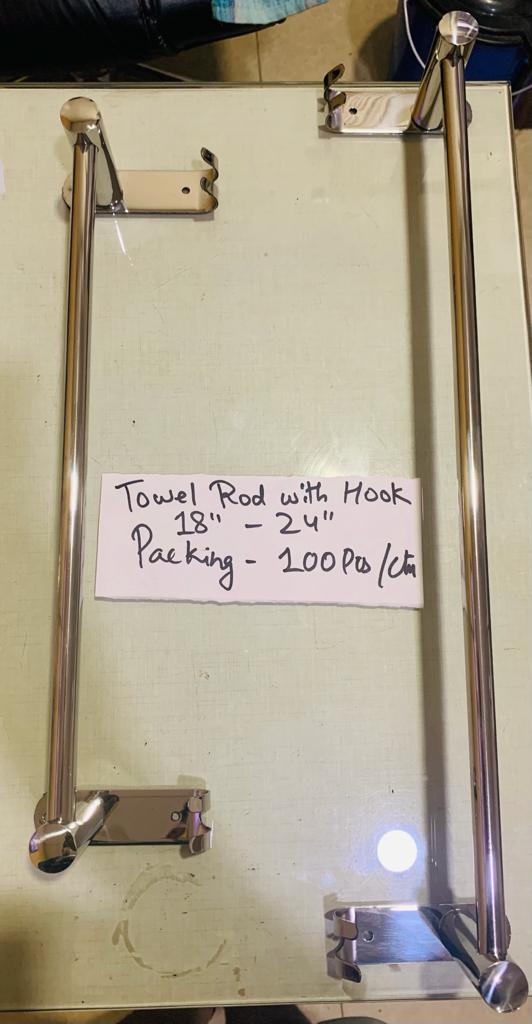 Towel Rod with Hook
18" - 24"
Packing - 100 Pcs/Ctn